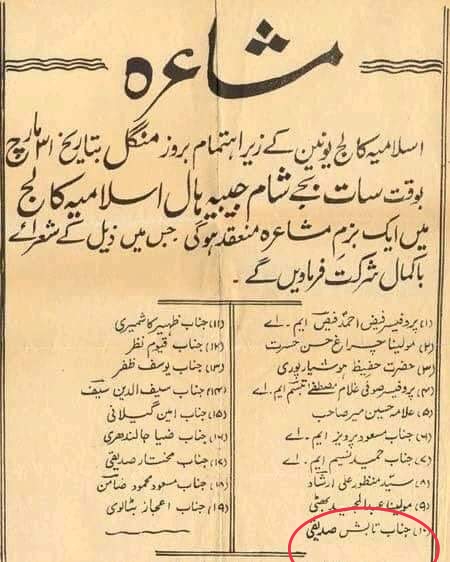 مشاعرہ
اسلامیہ کالج یونین کے زیر اہتمام بروز منگل بتاریخ ۳۱ مارچ
بوقت سات بجے شام حبیبیہ ہال اسلامیہ کالج
میں ایک بزم مشاعرہ منعقد ہوگی جس میں ذیل کے شعرائے
باکمال شرکت فرماویں گے۔
(۱) پروفیسر فیض احمد فیضؔ ایم۔اے
(۲) مولینا چراغ حسن حسرت
(۳) حضرت حفیظ ہوشیارپوری
(۴) پروفیسر صوفی غلام مصطفٰے تبسم ایم۔اے
(۵) علامہ حسین میر صاحب
(۶) جناب مسعود پرویز ایم۔اے
(۷) جناب حمید نسیم ایم۔اے
(۸) سیّد منظور علی ارشاد
(۹) مولینا عبدالمجید بھٹی
(۱۰) جناب تابش صدیقی
(۱۱) جناب ظہیر کاشمیری
(۱۲) جناب قیوم نظر
(۱۳) جناب یوسف ظفر
(۱۴) جناب سیف الدین سیف
(۱۵) جناب امین گیلانی
(۱۶) جناب ضیا جالندھری
(۱۷) جناب مختار صدیقی
(۱۸) جناب مسعود محمود ضامن
(۱۹) جناب اعجاز بٹالوی